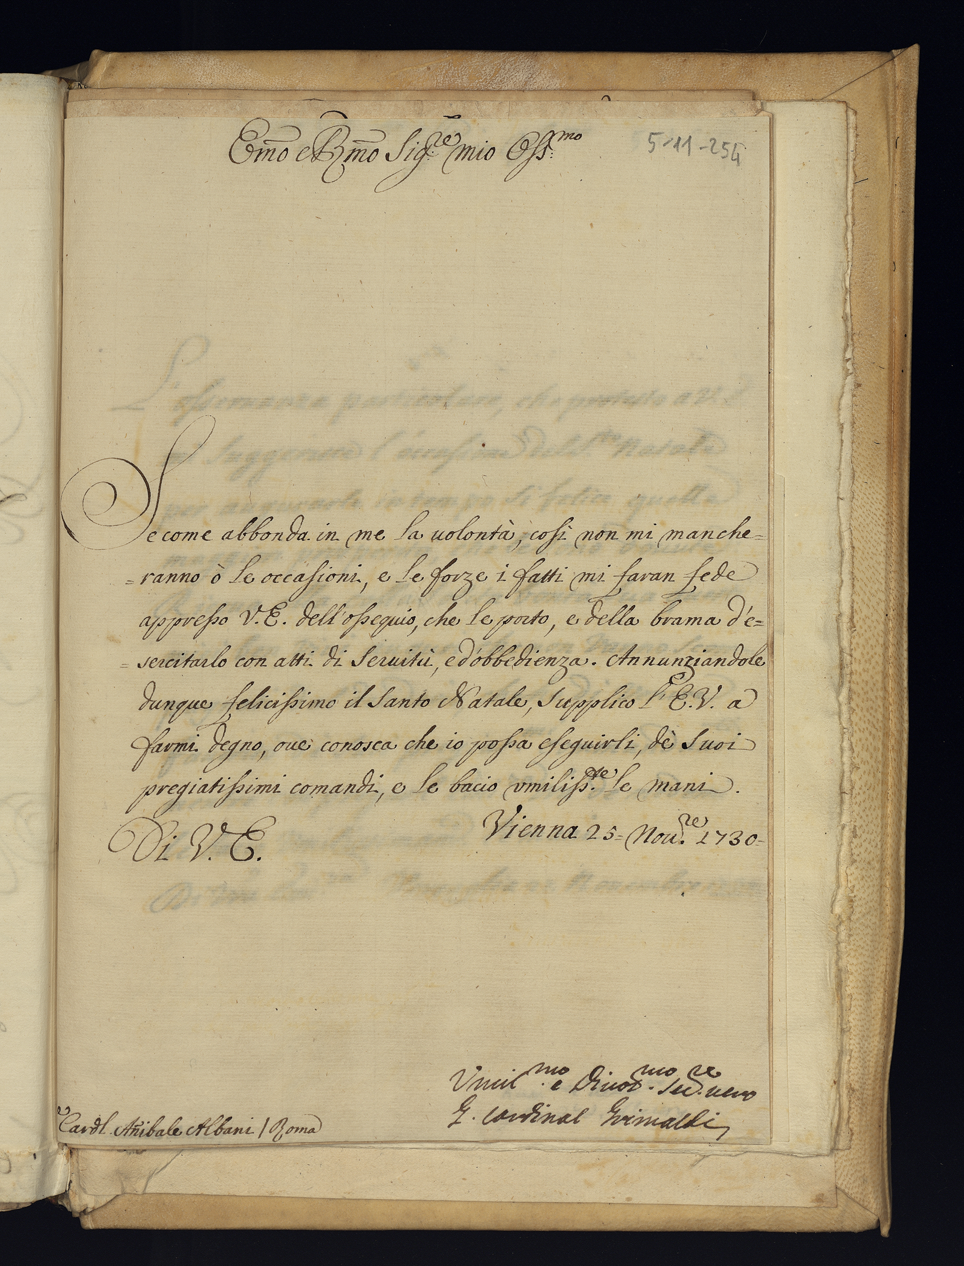 Emo e Rmo Sig.re mio Oss.mo
5-11-254
Se come abbonda in me la volontà, così non mi manche=
=ranno ò le occasioni, e le forze i fatti mi faran fede
appresso V.E. dell'ossequio, che le porto, e della brama d'e=
=sercitarlo con atti di servitù, e d'obbedienza. Annunziandole
dunque felicissimo il Santo Natale, supplico l'E.V. a
farmi degno, ove conosca che io possa eseguirli, dè suoi
pregiatissimi comandi, e le bacio vmiliss.te le mani.
Di V.E.
Vienna 25= Nou.re 1730=
Vmil.mo e Diuot.mo Ser.re vero
G. Cardinal Grimaldi
Cardl. Anibale Albani / Roma